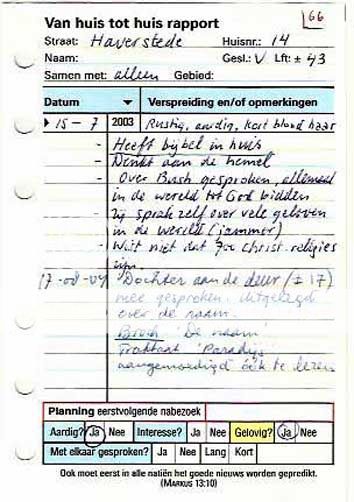 66
Van huis tot huis rapport
Straat: Haverstede Huisnr.: 14
Naam: Gesl.: V Lft: ± 43
Samen met: alleen Gebied:
Datum Verspreiding en/of opmerkingen
15 - 7 2003 Rustig, aardig, kort blond haar
- Heeft bijbel in huis
- Denkt aan de hemel
- Over Bush gesproken, allemaal
in de wereld tot God bidden
- Zij sprak zelf over vele geloven
in de wereld (jammer)
- Wist niet dat 700 christ. religies
zijn.
17-08-04 Dochter aan de deur (± 17)
mee gesproken. Uitgelegd
over de naam.
Broch 'De naam'
Traktaat 'Paradijs'
aangemoedigd ook te lezen
Planning eerstvolgende nabezoek
Aardig? Ja Nee Interesse? Ja Nee Gelovig? Ja Nee
Met elkaar gesproken? Ja Nee Lang Kort
Ook moet eerst in alle natiën het goede nieuws worden gepredikt.
(MARKUS 13:10)